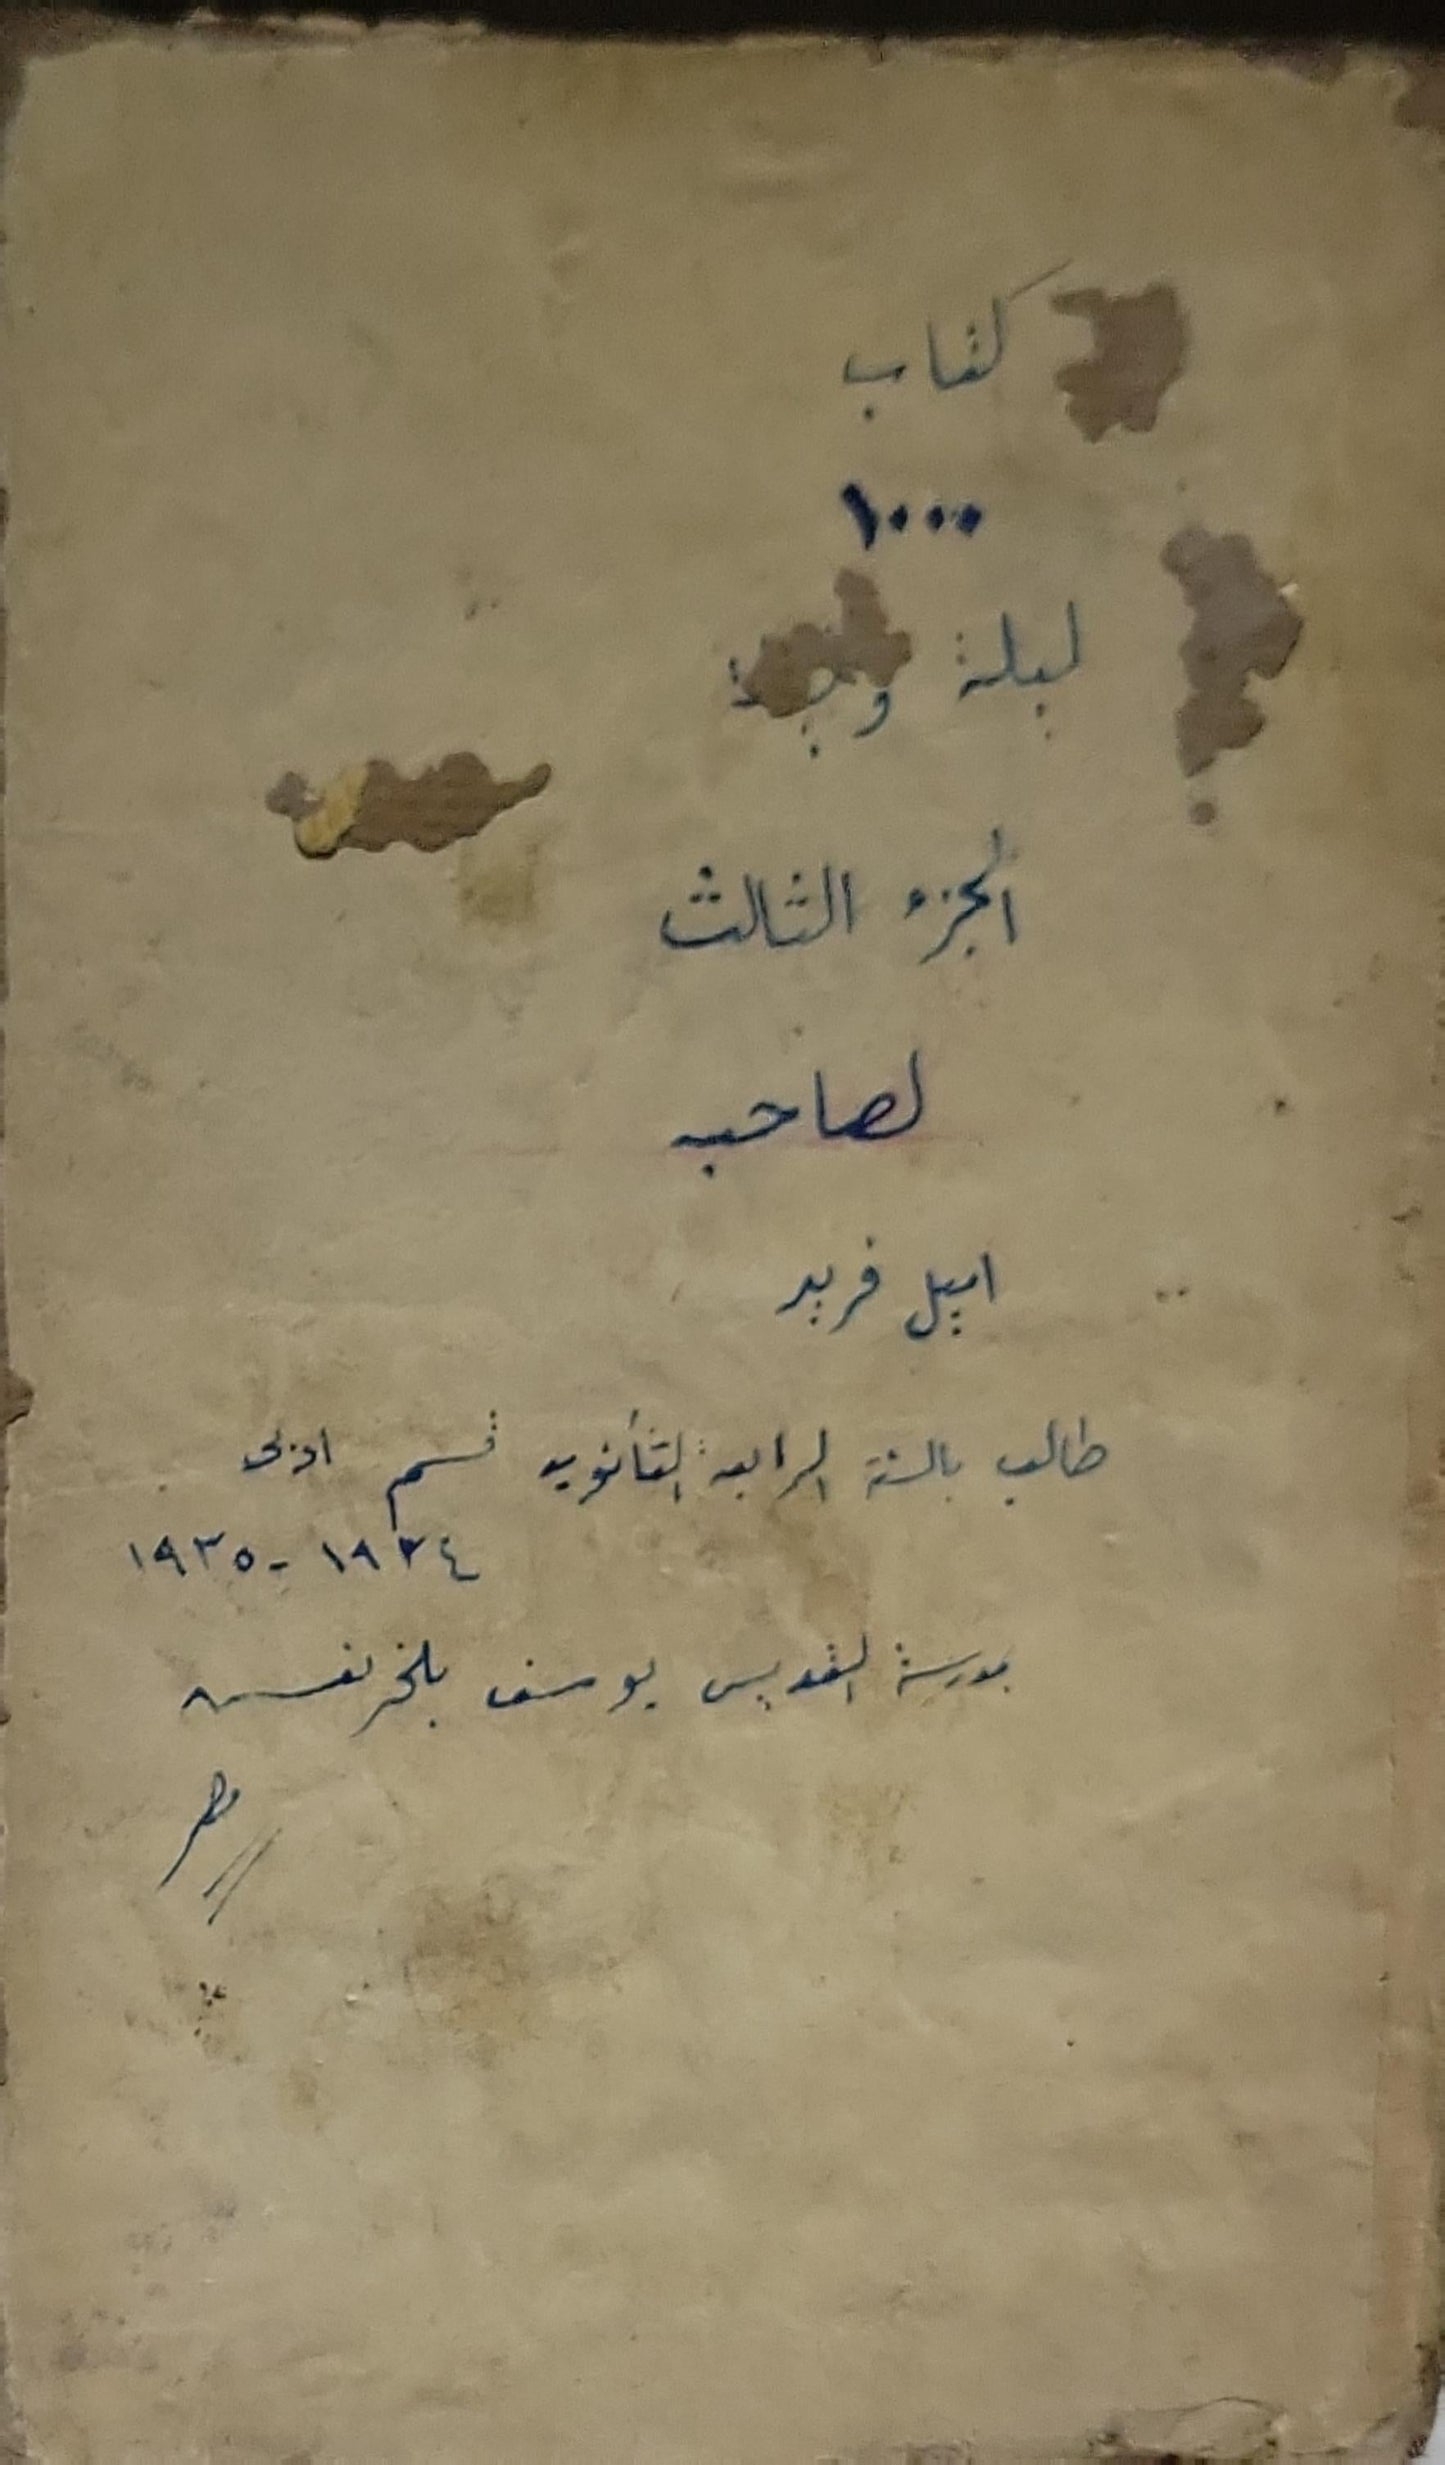 كتاب
١٠٠٠
ليلة و
الجزء الثالث
لصاحبه
اميل فريد
طالب بالسنة الرابعة الثانويه قسم ادبى
١٩٣٤ - ١٩٣٥
بمدرسة القديس يوسف بالخرنفس
مصر